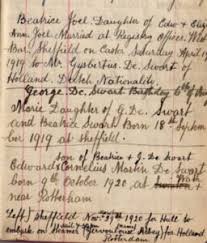 Beatrice Joel. Daughter of Edw & Eliz
Ann Joel Married at Registry Office, West
Bar, Sheffield on Easter Saturday April 19
1919 to Mr Gysbertus De Swart of
Holland. Dutch Nationality
George De Swart Birthday 6th
Marie Daughter of G. De Swart
and Beatrice Swart Born 18th Septem
ber 1919 at Sheffield.
Son of Beatrice & G. De Swart
Edward Cornelius Martin De
Born 9th October 1920 at Wath
near Rotherham
Left Sheffield Nov 1920 for Hull to
embark on Steamer for Holland
Rotterdam